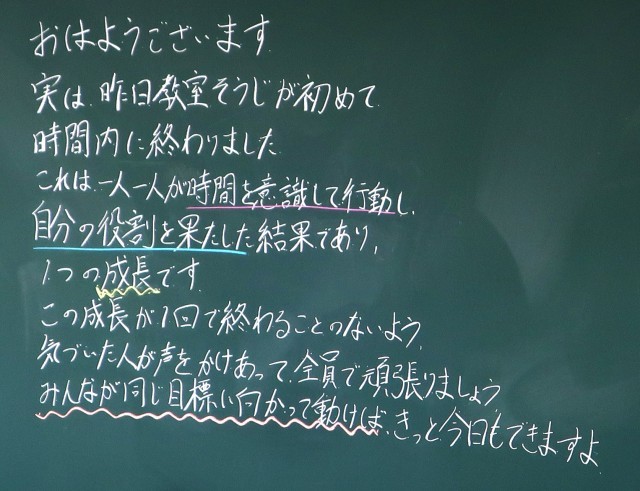 おはようございます.
実は、昨日教室そうじが初めて
時間内に終わりました.
これは、一人一人が時間を意識して行動し、
自分の役割を果たした結果であり、
1つの成長です.
この成長が1回で終わることのないよう、
気づいた人が声をかけあって、全員で頑張りましょう.
みんなが同じ目標に向かって動けば、きっと今日もできますよ.